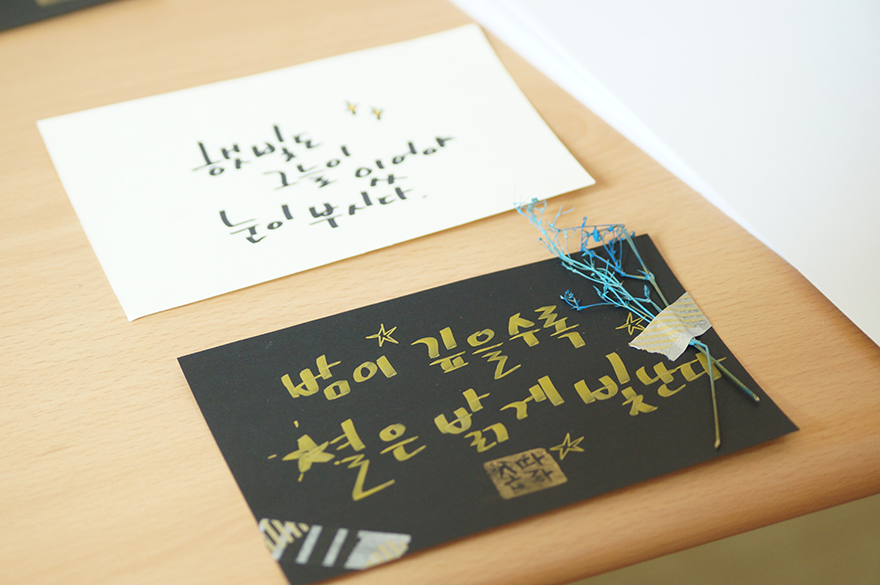 햇빛도
그늘이 있어야
눈이 부시다.
밤이 깊을수록
별은 밝게 빛난다